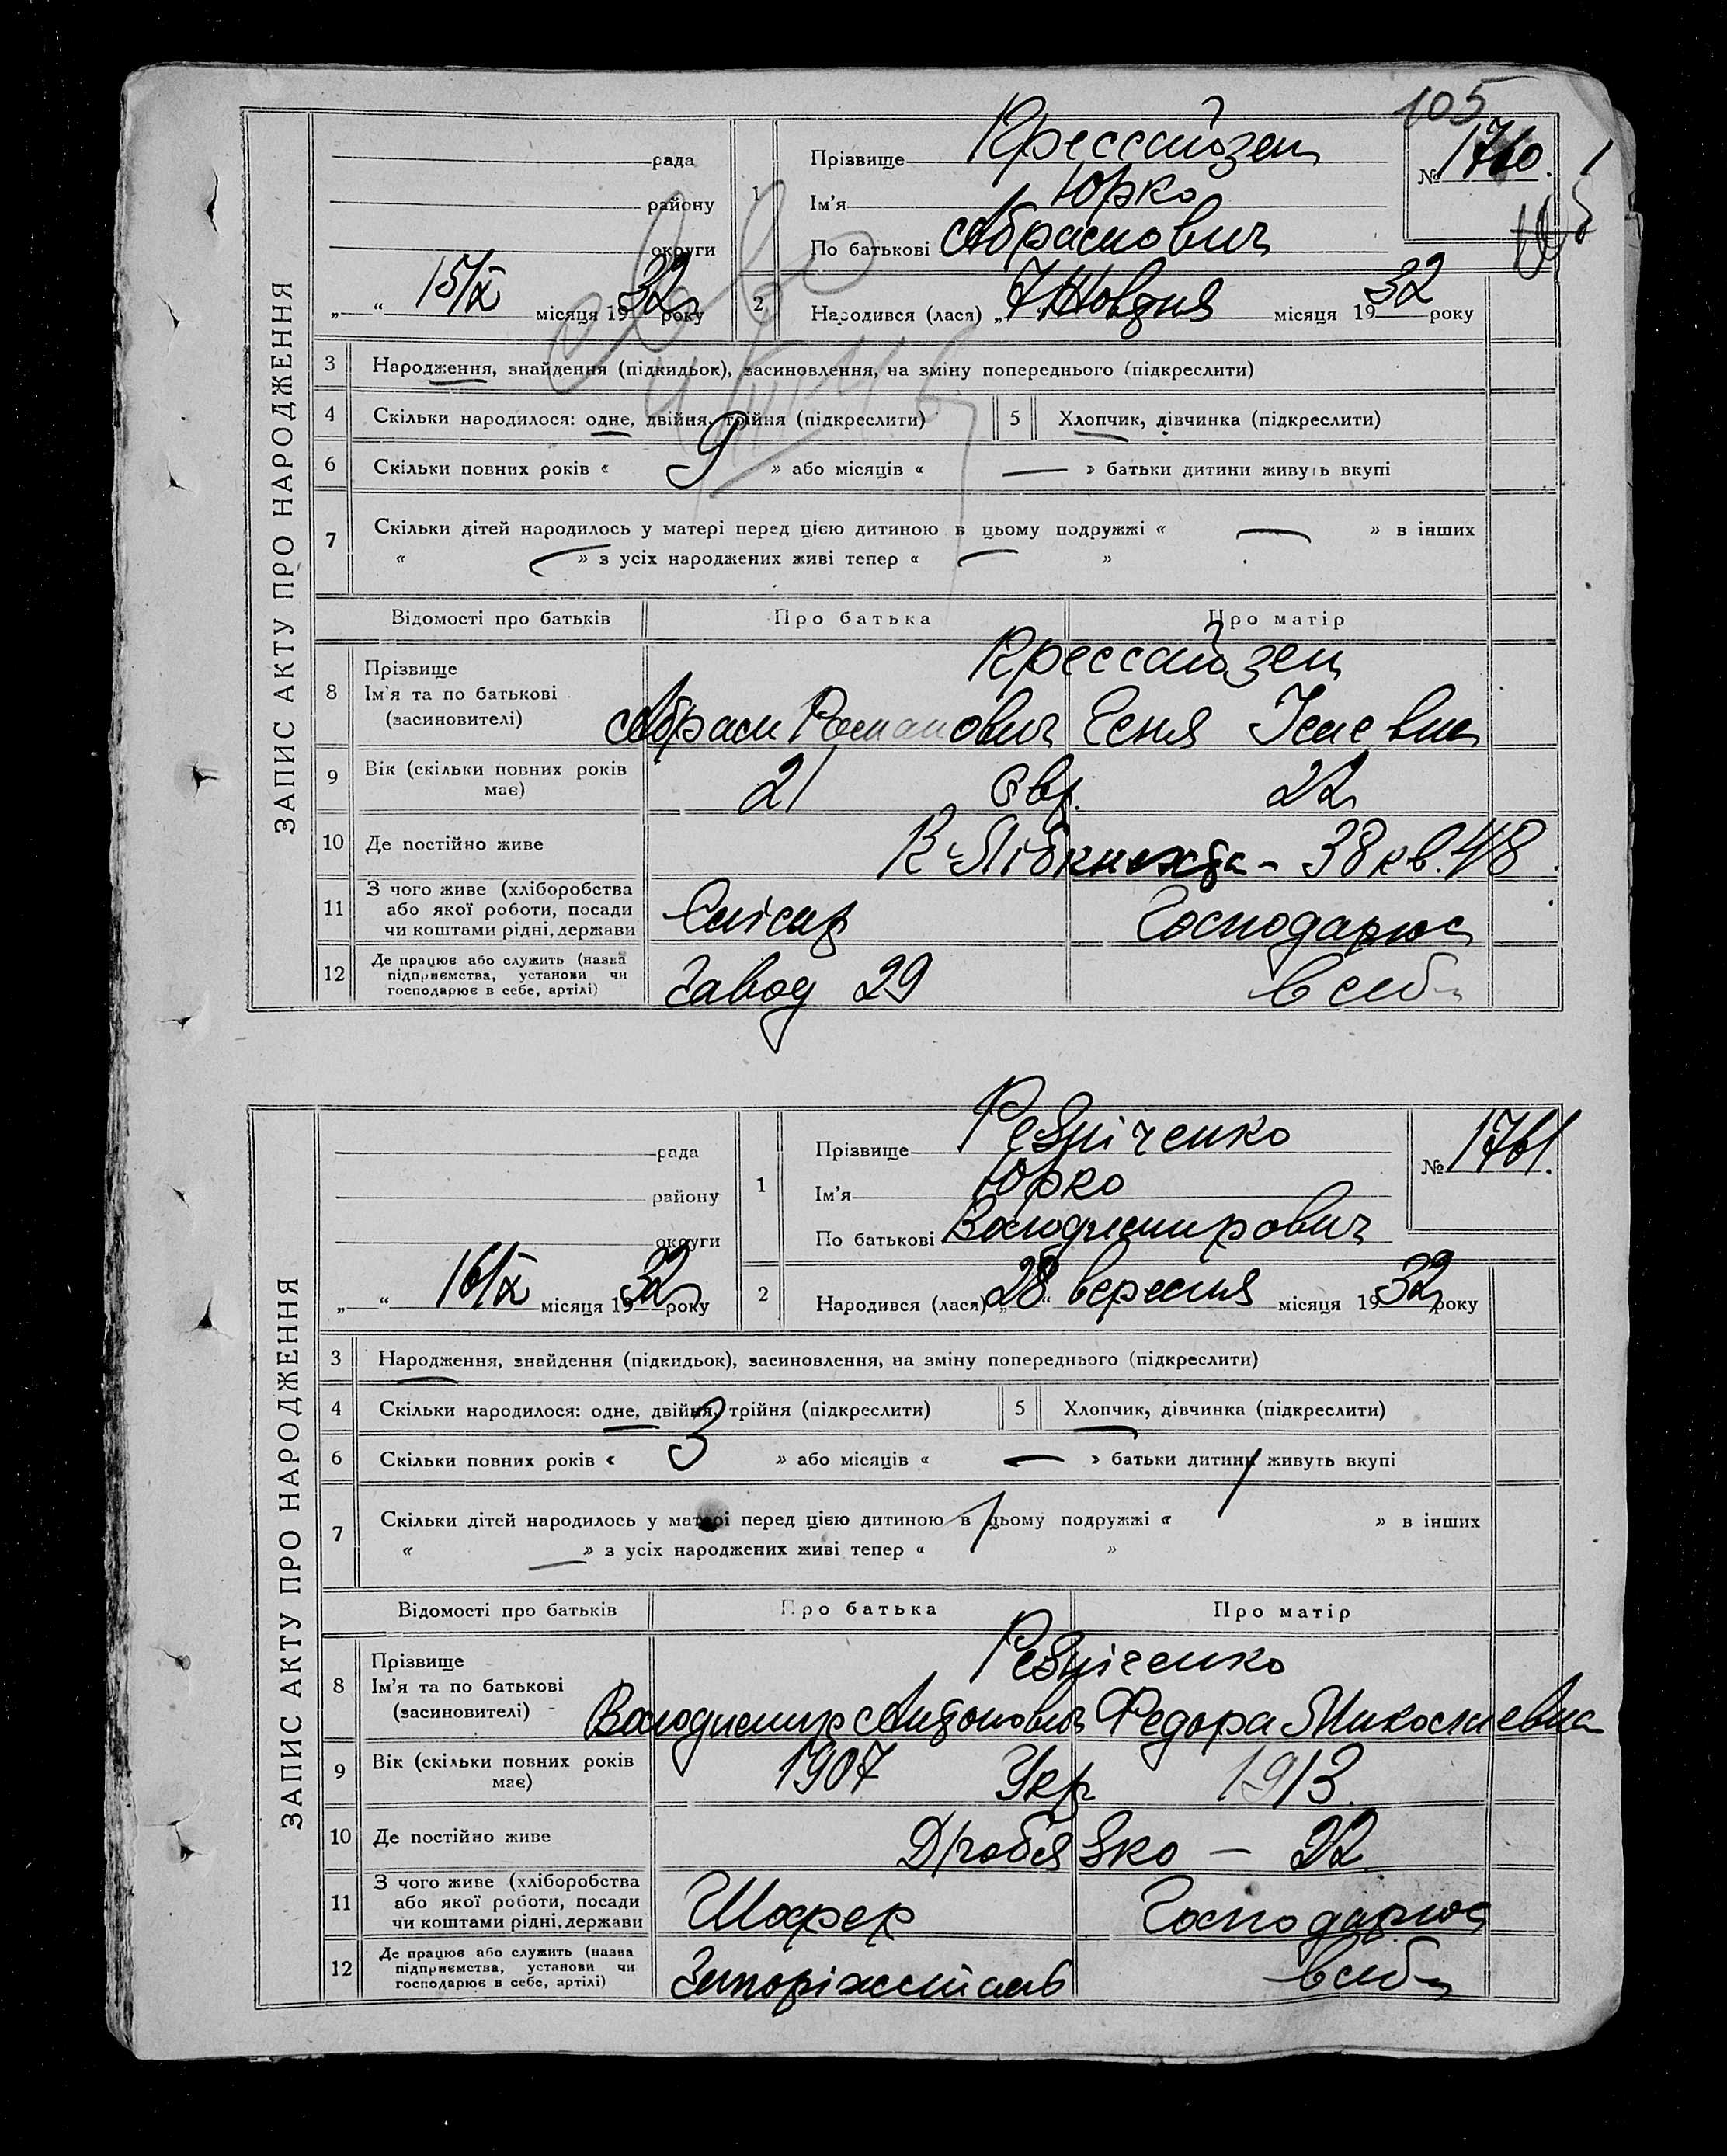 105
ЗАПИС АКТУ ПРО НАРОДЖЕННЯ
рада
району
округи
„ “ 15/X місяця 1932 року
1
Прізвище Крессайзен
Ім'я Юрко
По батькові Абрамович
№ 1760.
2 Народився (лася) „7“ Жовтня місяця 1932 року
3 Народження, знайдення (підкидьок), засиновлення, на зміну попереднього (підкреслити)
4 Скільки народилося: одне, двійня, трійня (підкреслити) 5 Хлопчик, дівчинка (підкреслити)
6 Скільки повних років « 9 » або місяців « — » батьки дитини живуть вкупі
7 Скільки дітей народилось у матері перед цією дитиною в цьому подружжі « — » в інших
« — » з усіх народжених живі тепер « — »
Відомості про батьків Про батька Про матір
8 Прізвище Крессайзен
Ім'я та по батькові
(засиновителі) Абрам Романович Єсня Ісаєвна
9 Вік (скільки повних років має) 21 Євр. 22
10 Де постійно живе К Лібкнехта - 38 кв. 48
11 З чого живе (хліборобства або якої роботи, посади чи коштами рідні, держави Слісар Господарює
12 Де працює або служить (назва підприємства, установи чи господарює в себе, артілі) Завод 29 в себе
ЗАПИС АКТУ ПРО НАРОДЖЕННЯ
рада
району
округи
„ “ 16/X місяця 1932 року
1
Прізвище Резніченко
Ім'я Юрко
По батькові Володимирович
№ 1761.
2 Народився (лася) „28“ вересня місяця 1932 року
3 Народження, знайдення (підкидьок), засиновлення, на зміну попереднього (підкреслити)
4 Скільки народилося: одне, двійня, трійня (підкреслити) 5 Хлопчик, дівчинка (підкреслити)
6 Скільки повних років « 3 » або місяців « — » батьки дитини живуть вкупі
7 Скільки дітей народилось у матері перед цією дитиною в цьому подружжі « 1 » в інших
« — » з усіх народжених живі тепер « 1 »
Відомості про батьків Про батька Про матір
8 Прізвище Резніченко
Ім'я та по батькові
(засиновителі) Володимир Антонович Федора Миколаєвна
9 Вік (скільки повних років має) 1907 Укр 1913.
10 Де постійно живе Дробязко — 22.
11 З чого живе (хліборобства або якої роботи, посади чи коштами рідні, держави Шофер Господарює
12 Де працює або служить (назва підприємства, установи чи господарює в себе, артілі) Запоріжсталь в себе